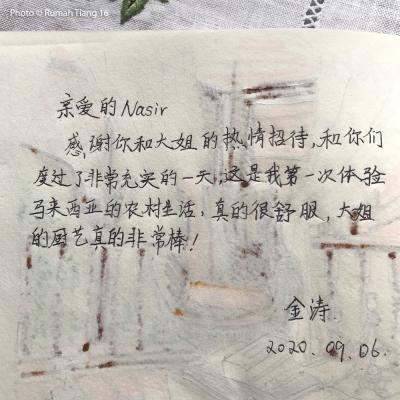 Photo © Rumah Tiang 16
亲爱的Nasir
感谢你和大姐的热情招待,和你们
度过了非常充实的一天,这是我第一次体验
马来西亚的农村生活,真的很舒服,大姐
的厨艺真的非常棒!
金涛
2020.09.06.